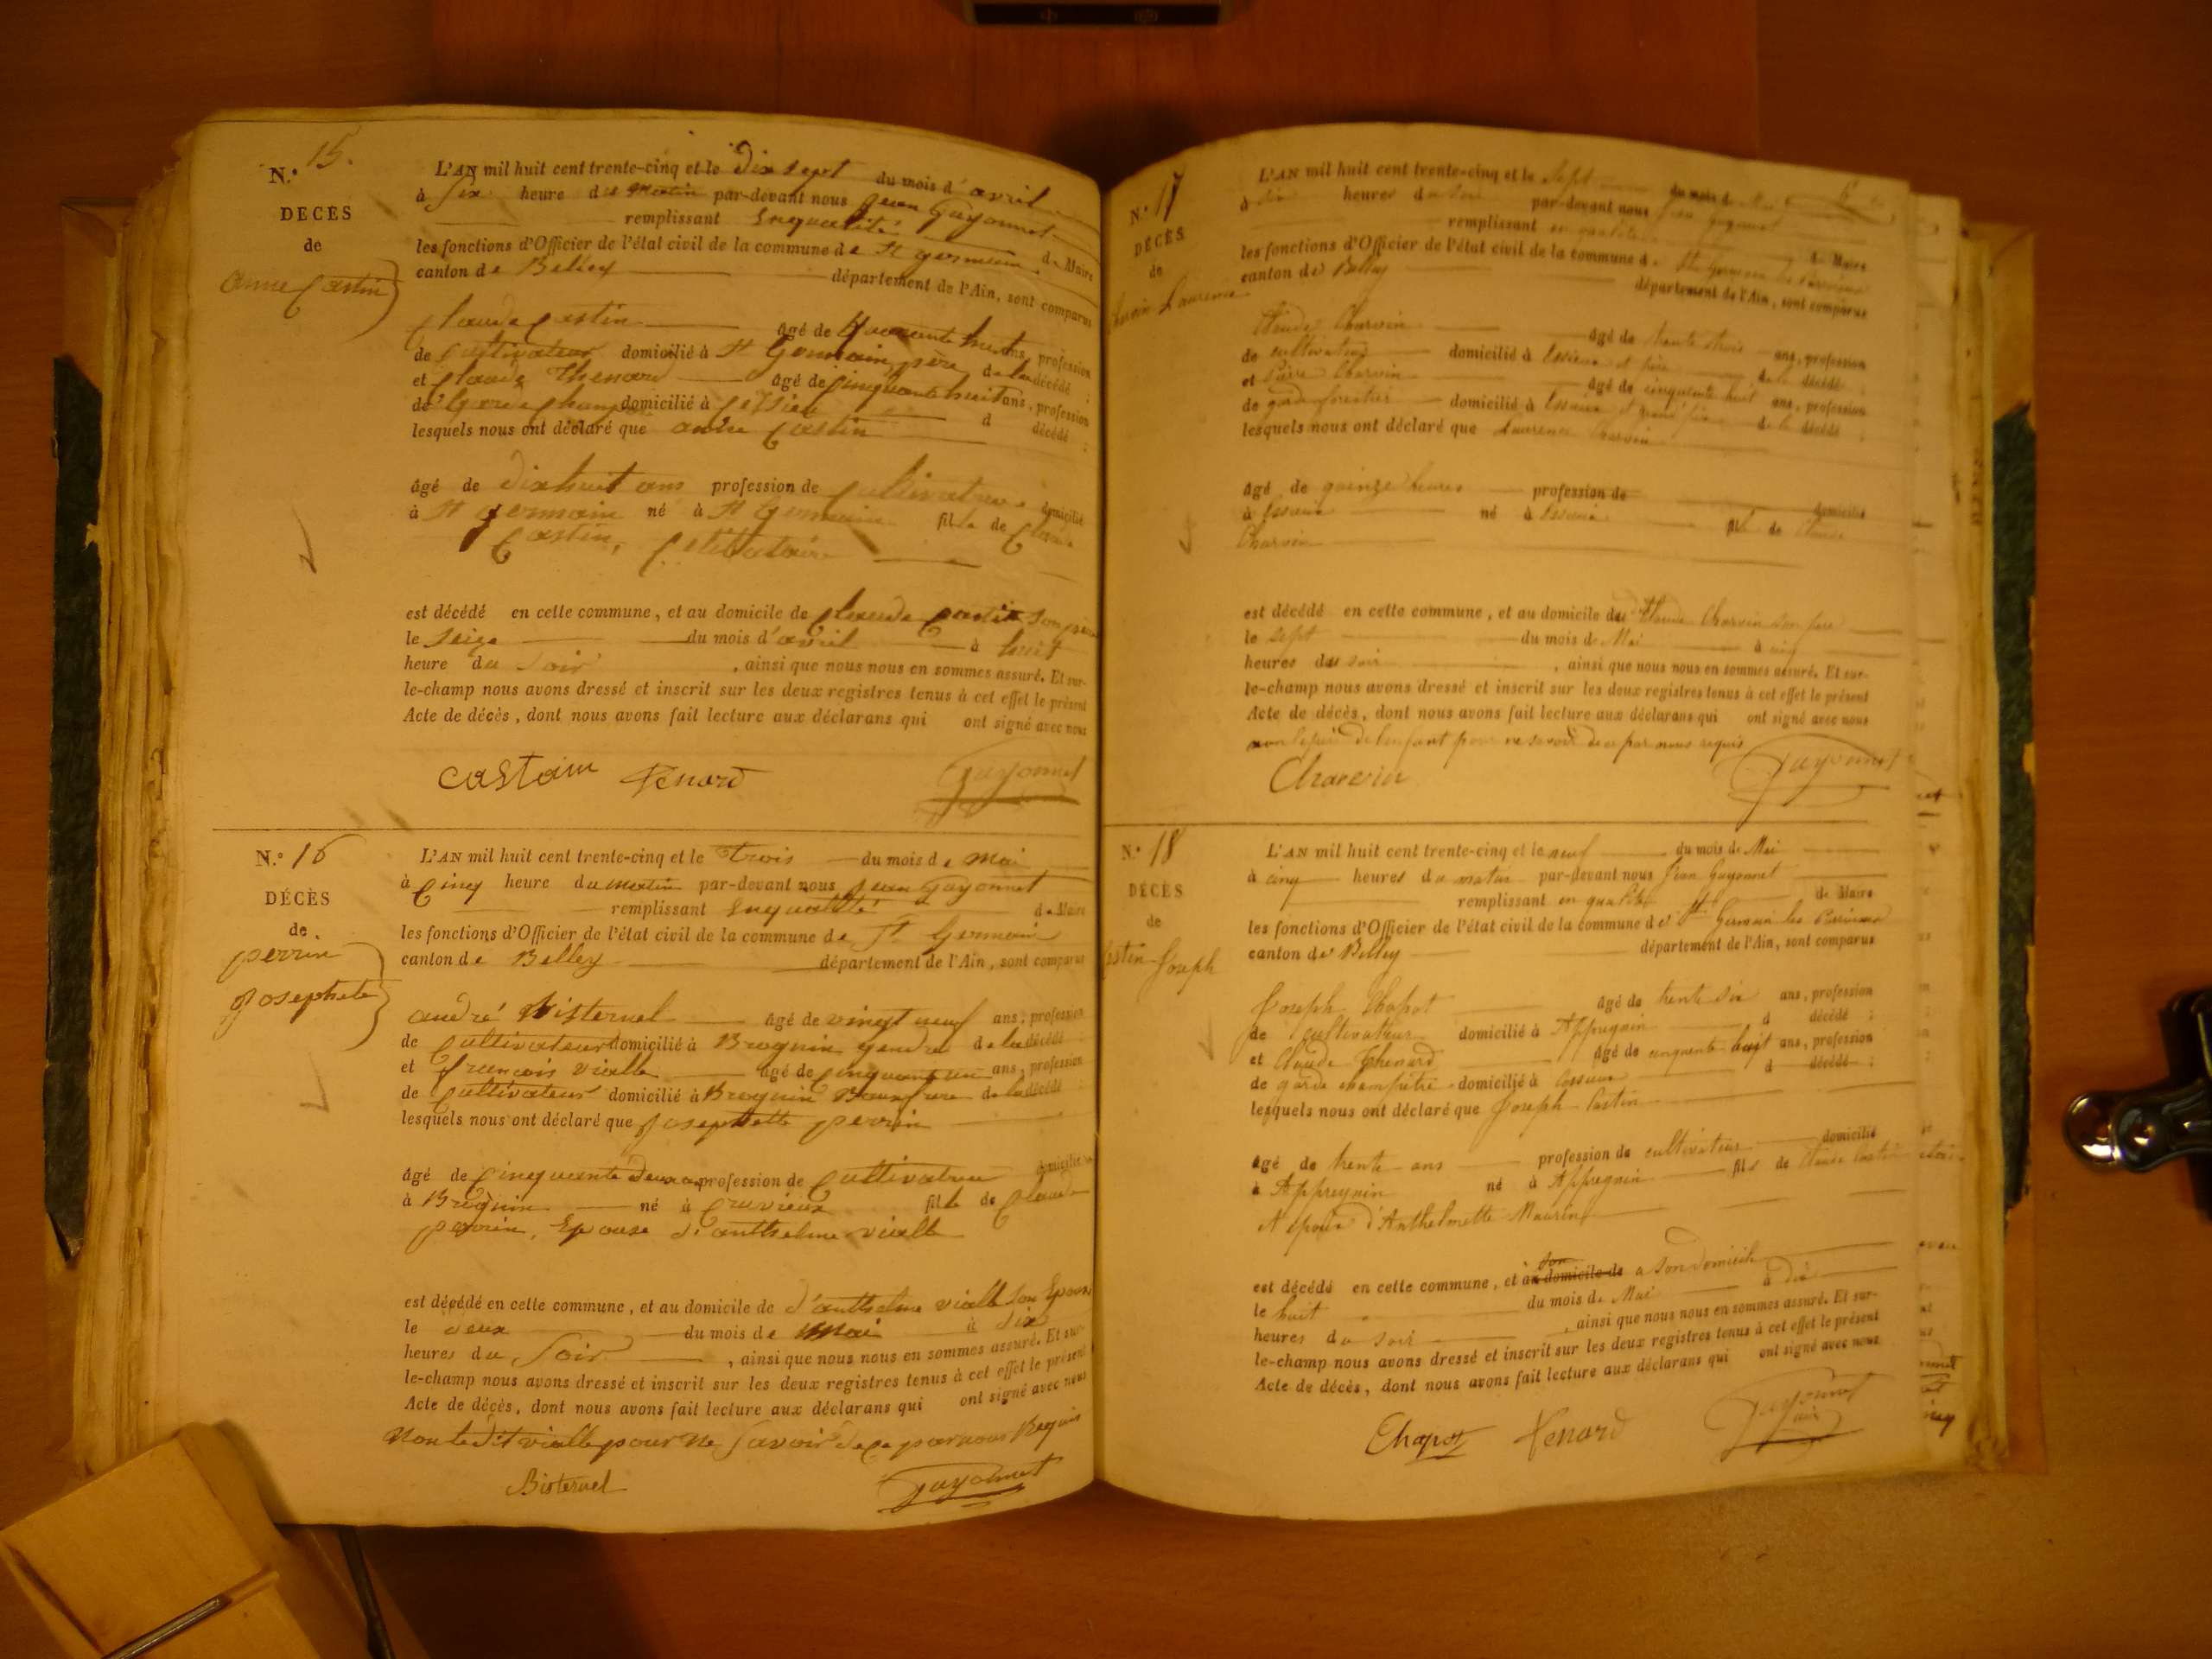 N.° 15.
DECÈS
de
anne Castin
L'AN mil huit cent trente-cinq et le Dix sept du mois d'avril
à six heure du matin par-devant nous jean Guyonnet
remplissant Enqualité de Maire
les fonctions d'Officier de l'état civil de la commune de St germain
canton de Belley département de l'Ain, sont comparus
Claude Castin âgé de quarente huit ans, profession
de Cultivateur domicilié à St Germain, père de la décédé ;
et Claude Thenard âgé de Cinquante huit ans, profession
de Garde Champetre domicilié à Cessieu d décédé ;
lesquels nous ont déclaré que anne Castin
âgé de Dix huit ans profession de Cultivatrice domicilié
à St germain né à St Germain fille de Claude
Castin, Célibataire
est décédé en cette commune, et au domicile de Claude Castin son père
le Seize du mois d'avril à huit
heure du Soir, ainsi que nous nous en sommes assuré. Et sur-
le-champ nous avons dressé et inscrit sur les deux registres tenus à cet effet le présent
Acte de décès, dont nous avons fait lecture aux déclarans qui ont signé avec nous
castain Tenard Guyonnet
N.° 16
DÉCÈS
de
perrin
Josephete
L'AN mil huit cent trente-cinq et le Trois du mois de Mai
à Cinq heure du matin par-devant nous Jean Guyonnet
remplissant Enqualité de Maire
les fonctions d'Officier de l'état civil de la commune de St Germain
canton de Belley département de l'Ain, sont comparus
andré Bisternel âgé de vingt neuf ans, profession
de Cultivateur domicilié à Brognin gendre de la décédé
et francois vialle âgé de Cinquant un ans, profession
de Cultivateur domicilié à Brognin Beaufrere de la décédé
lesquels nous ont déclaré que Josephette perrin
âgé de Cinquante Deux ans profession de Cultivatrice domicilié
à Brognin né à Cuvieux fille de Claude
perrin, Epouse d'anthelme vialle
est décédé en cette commune, et au domicile de d'anthelme vialle son Epoux
le deux du mois de Mai à dix
heures du Soir, ainsi que nous nous en sommes assuré. Et sur-
le-champ nous avons dressé et inscrit sur les deux registres tenus à cet effet le présent
Acte de décès, dont nous avons fait lecture aux déclarans qui ont signé avec nous
Non ledit vialle pour ne Savoir de ce par nous Requis
Bisternel Guyonnet
N.° 17
DÉCÈS
de
Laurence
L'AN mil huit cent trente-cinq et le Sept du mois de Mai
à six heures du soir par-devant nous Jean guyonnet
remplissant en qualité de Maire
les fonctions d'Officier de l'état civil de la commune de St Germain les Paroisses
canton de Belley département de l'Ain, sont comparus
Claude Charvin âgé de trente trois ans, profession
de cultivateur domicilié à Essieux et père de la décédé ;
et Pierre Charvin âgé de cinquante huit ans, profession
de garde forestier domicilié à Essieux et grand père de la décédé ;
lesquels nous ont déclaré que Laurence Charvin
âgé de quinze heures profession de domicilié
à Essieux né à Essieux fille de Claude
Charvin
est décédé en cette commune, et au domicile de Claude Charvin son père
le sept du mois de Mai à cinq
heures du soir, ainsi que nous nous en sommes assuré. Et sur-
le-champ nous avons dressé et inscrit sur les deux registres tenus à cet effet le présent
Acte de décès, dont nous avons fait lecture aux déclarans qui ont signé avec nous
non le père de l'enfant pour ne savoir de ce par nous requis
Charvin Guyonnet
N.° 18
DÉCÈS
de
Joseph
L'AN mil huit cent trente-cinq et le neuf du mois de Mai
à cinq heures du matin par-devant nous Jean Guyonnet
remplissant en qualité de Maire
les fonctions d'Officier de l'état civil de la commune de St Germain les Paroisses
canton de Belley département de l'Ain, sont comparus
Joseph Chapot âgé de trente six ans, profession
de cultivateur domicilié à Appregnin d décédé ;
et Claude Thenard âgé de cinquante huit ans, profession
de garde champêtre domicilié à Essieux d décédé ;
lesquels nous ont déclaré que Joseph Castin
âgé de trente ans profession de cultivateur domicilié
à Appregnin né à Appregnin fils de Claude Castin
et époux d'Anthelmette Maurin
est décédé en cette commune, et au domicile de a son domicile
le huit du mois de Mai à dix
heures du soir, ainsi que nous nous en sommes assuré. Et sur-
le-champ nous avons dressé et inscrit sur les deux registres tenus à cet effet le présent
Acte de décès, dont nous avons fait lecture aux déclarans qui ont signé avec nous
Chapot Tenard Guyonnet